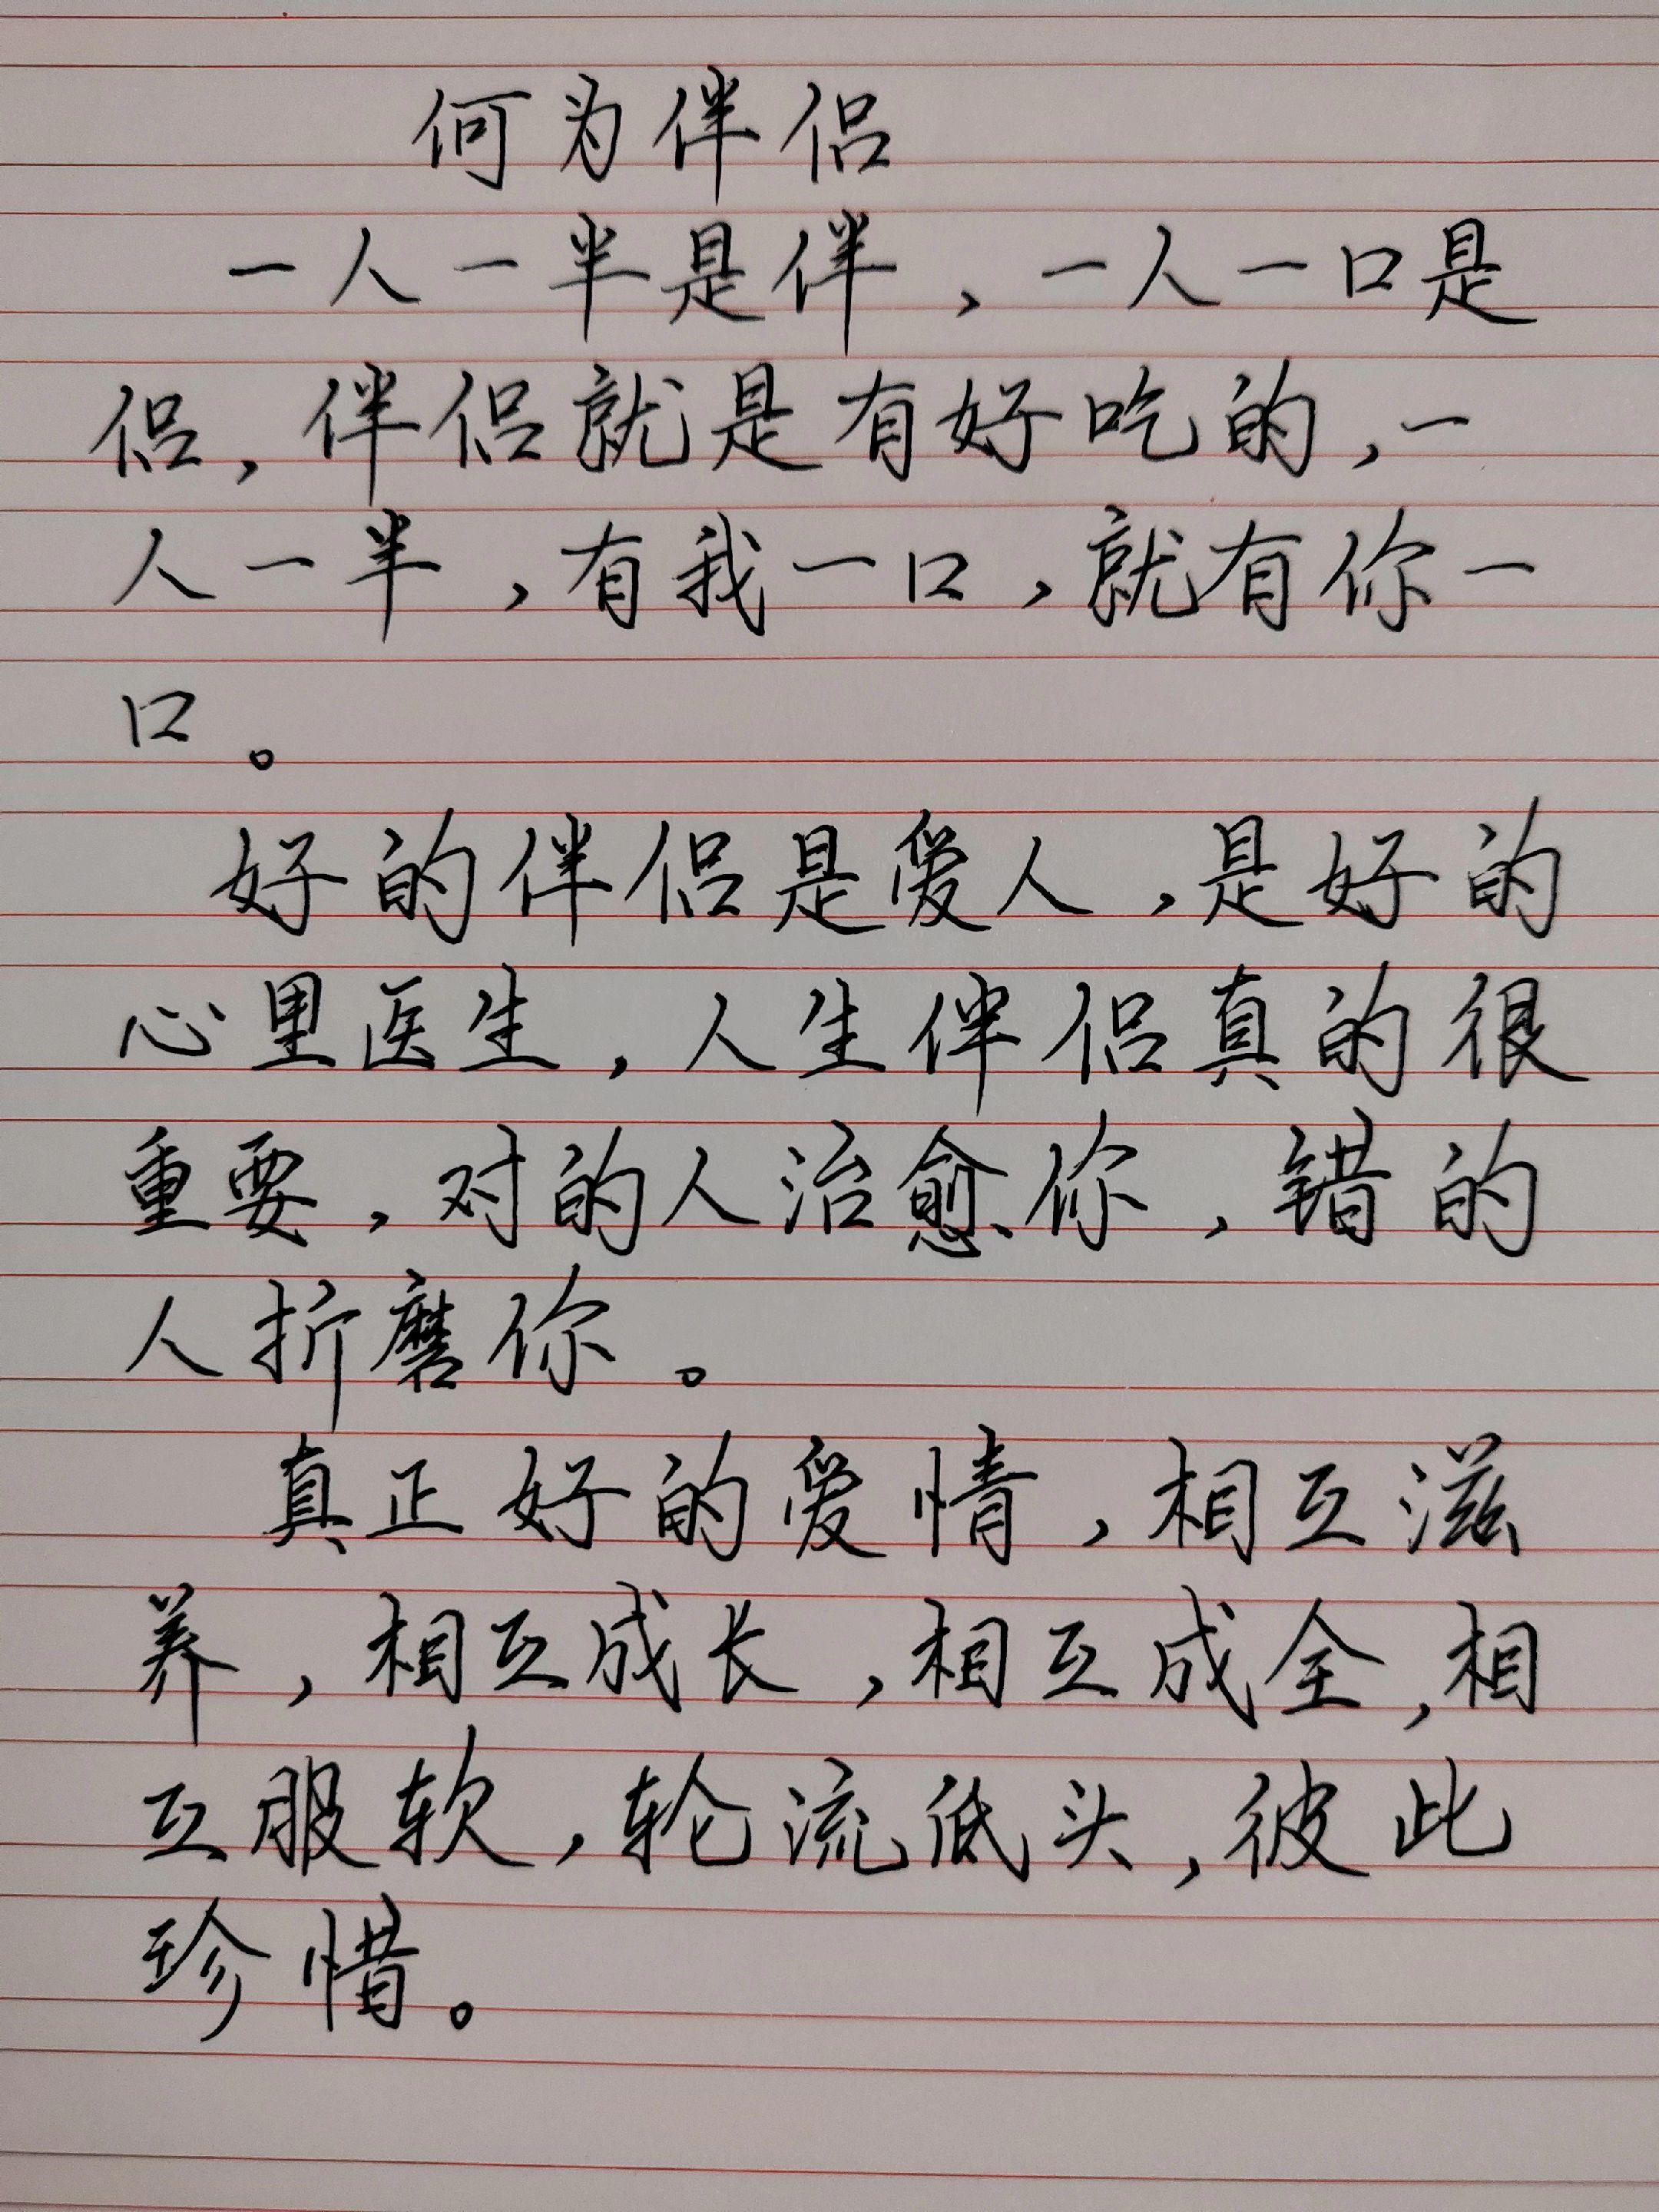 何为伴侣
一人一半是伴，一人一口是
侣，伴侣就是有好吃的，一
人一半，有我一口，就有你一
口。
好的伴侣是爱人，是好的
心里医生，人生伴侣真的很
重要，对的人治愈你，错的
人折磨你。
真正好的爱情，相互滋
养，相互成长，相互成全，相
互服软，轮流低头，彼此
珍惜。